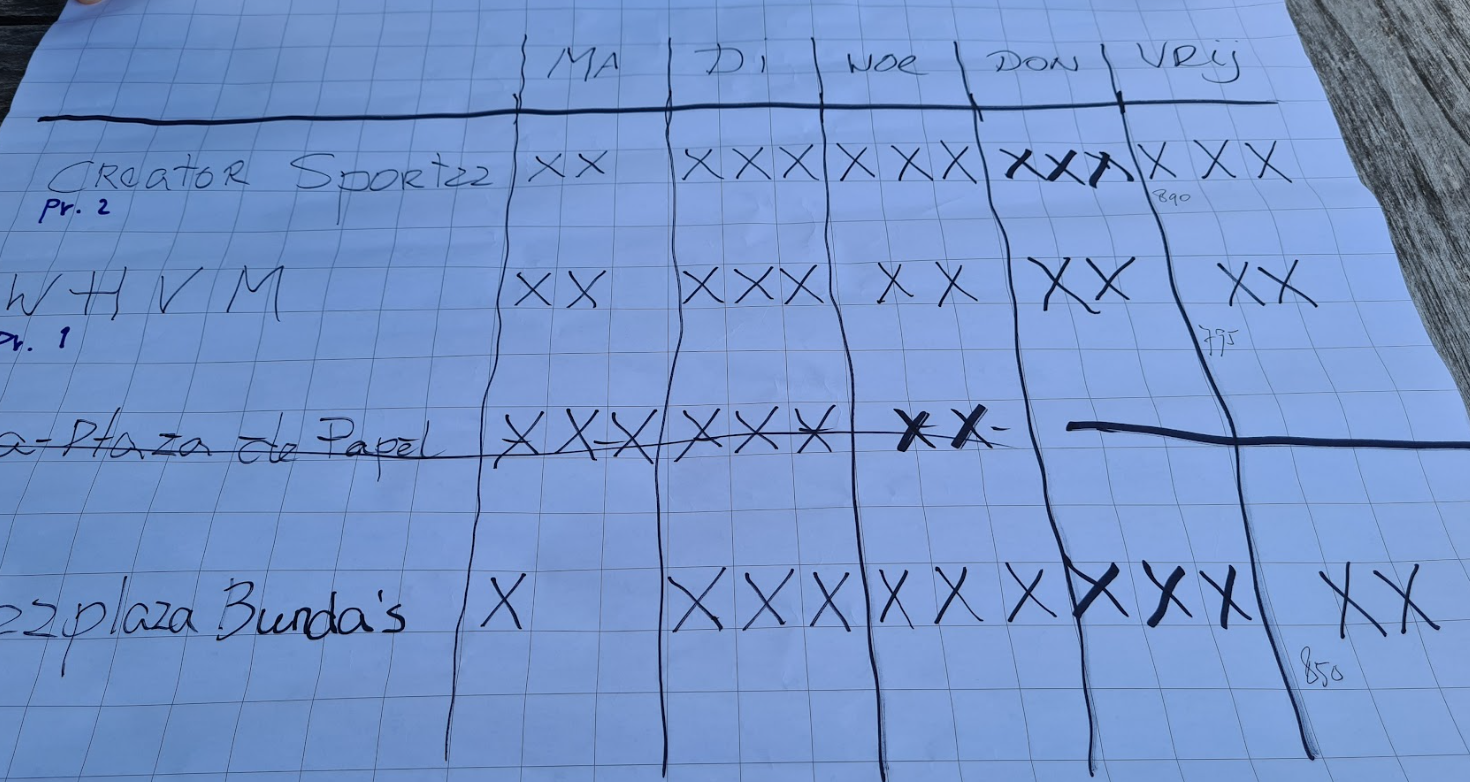 MA Di WOE DON VRij
CREATOR SPORTZZ XX XXX XXX XXX XXX
pr. 2 890
W H V M XX XXX XX XX XX
pr. 1 775
a-Plaza de Papel XXX XXX XX-
zzplaza Bunda's X XXX XXX XXX XX
850